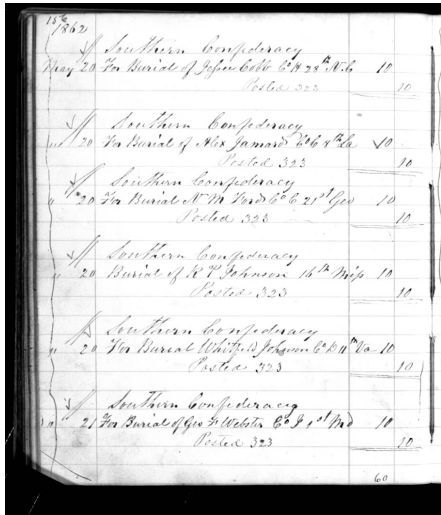 156
1862
Southern Confederacy
May 20 For Burial of Jesse Cobb Co H 28th N.C 10
Posted 323 10
Southern Confederacy
" 20 For Burial of Alex Co C 8th La 10
Posted 323 10
Southern Confederacy
" 20 For Burial N M Ford Co C 21st Geo 10
Posted 323 10
Southern Confederacy
" 20 Burial of R P Johnson 16th Miss 10
Posted 323 10
Southern Confederacy
" 20 For Burial Whitfield Johnson Co D 11th Va 10
Posted 323 10
Southern Confederacy
" 21 For Burial of Geo Webster Co J 1st Md 10
Posted 323 10
60